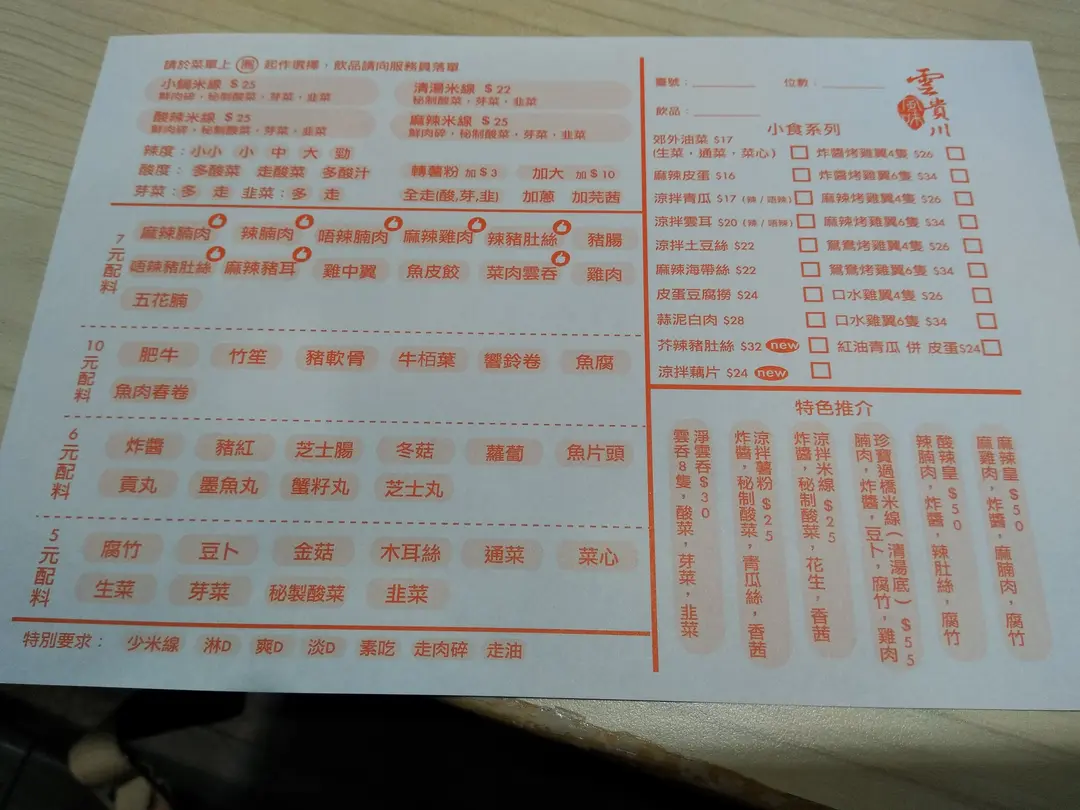 請於菜單上 圈 起作選擇，飲品請向服務員落單
小鍋米線 $25
鮮肉碎、秘制酸菜、芽菜、韭菜
清湯米線 $22
秘制酸菜、芽菜、韭菜
酸辣米線 $25
鮮肉碎、秘制酸菜、芽菜、韭菜
麻辣米線 $25
鮮肉碎、秘制酸菜、芽菜、韭菜
辣度： 小小 小 中 大 勁
酸度： 多酸菜 走酸菜 多酸汁
轉薯粉 加$3 加大 加$10
芽菜：多 走 韭菜：多 走
全走(酸,芽,韭) 加蔥 加芫茜
7元配料
麻辣腩肉 辣腩肉 唔辣腩肉 麻辣雞肉 辣豬肚絲 豬腸
唔辣豬肚絲 麻辣豬耳 雞中翼 魚皮餃 菜肉雲吞 雞肉
五花腩
10元配料
肥牛 竹笙 豬軟骨 牛栢葉 響鈴卷 魚腐
魚肉春卷
6元配料
炸醬 豬紅 芝士腸 冬菇 蘿蔔 魚片頭
貢丸 墨魚丸 蟹籽丸 芝士丸
5元配料
腐竹 豆卜 金菇 木耳絲 通菜 菜心
生菜 芽菜 秘製酸菜 韭菜
特別要求： 少米線 淋D 爽D 淡D 素吃 走肉碎 走油
臺號： 位數：
飲品：
雲貴川
風味
小食系列
郊外油菜 $17
(生菜、通菜、菜心)
炸醬烤雞翼4隻 $26
麻辣皮蛋 $16
炸醬烤雞翼6隻 $34
涼拌青瓜 $17 (辣/唔辣)
麻辣烤雞翼4隻 $26
涼拌雲耳 $20 (辣/唔辣)
麻辣烤雞翼6隻 $34
涼拌土豆絲 $22
鴛鴦烤雞翼4隻 $26
麻辣海帶絲 $22
鴛鴦烤雞翼6隻 $34
皮蛋豆腐撈 $24
口水雞翼4隻 $26
蒜泥白肉 $28
口水雞翼6隻 $34
芥辣豬肚絲 $32 new
紅油青瓜 併 皮蛋$24
涼拌藕片 $24 new
特色推介
麻辣皇 $50
麻雞肉，炸醬，麻腩肉，腐竹
酸辣皇 $50
辣腩肉，炸醬，辣肚絲，腐竹
珍寶過橋米線（清湯底）$55
腩肉，炸醬，豆卜，腐竹，雞肉
涼拌米線 $25
炸醬，秘制酸菜，花生，香茜
涼拌薯粉 $25
炸醬，秘制酸菜，青瓜絲，香茜
淨雲吞$30
雲吞8隻，酸菜，芽菜，韭菜